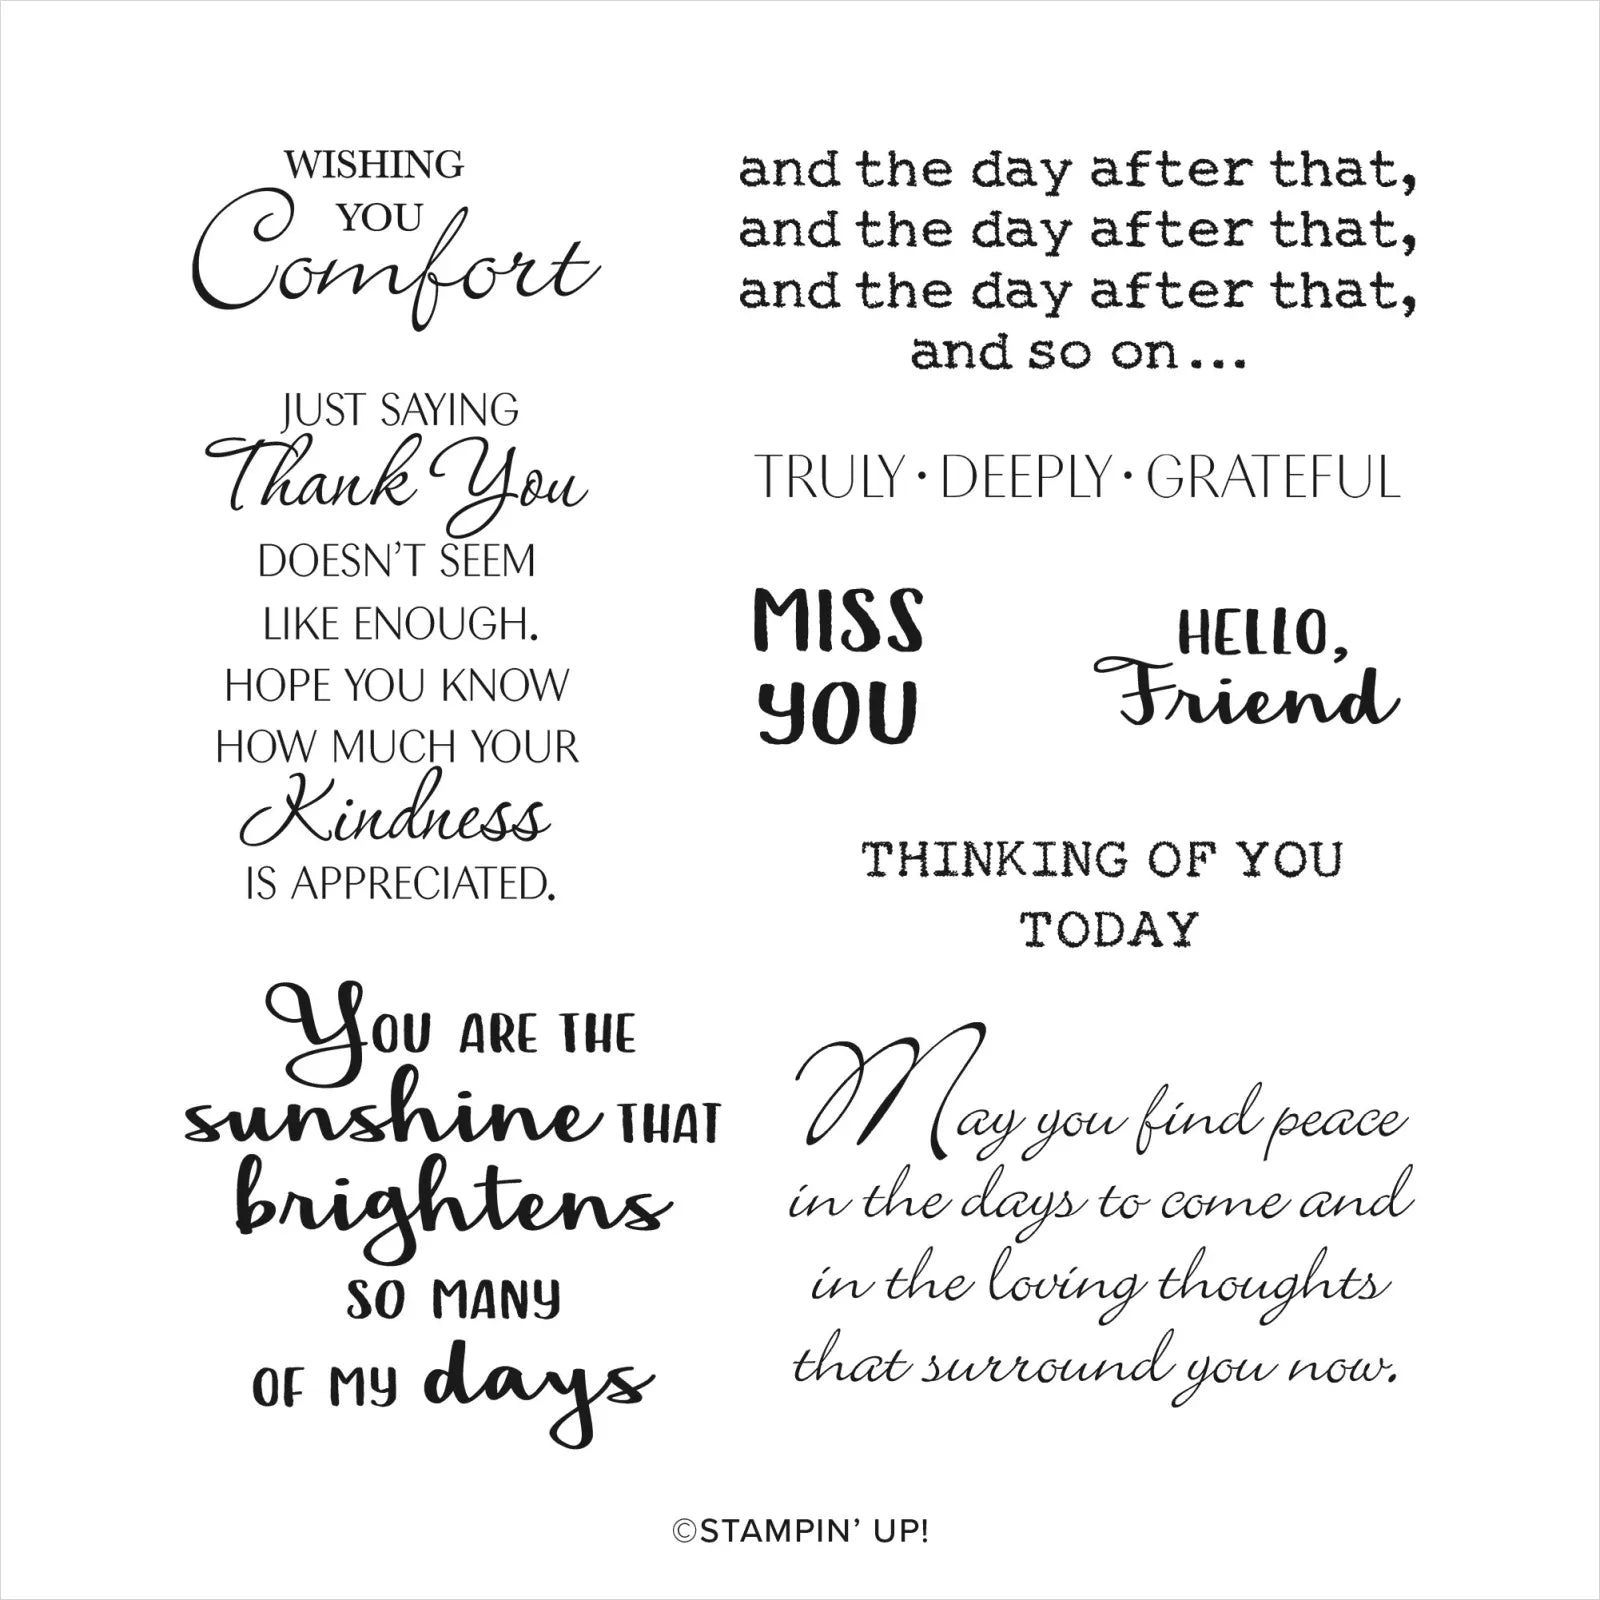 WISHING
YOU
Comfort
JUST SAYING
Thank You
DOESN'T SEEM
LIKE ENOUGH.
HOPE YOU KNOW
HOW MUCH YOUR
Kindness
IS APPRECIATED.
YOU ARE THE
sunshine THAT
brightens
SO MANY
OF MY days
and the day after that,
and the day after that,
and the day after that,
and so on...
TRULY · DEEPLY · GRATEFUL
MISS
YOU
HELLO,
Friend
THINKING OF YOU
TODAY
May you find peace
in the days to come and
in the loving thoughts
that surround you now.
©STAMPIN' UP!